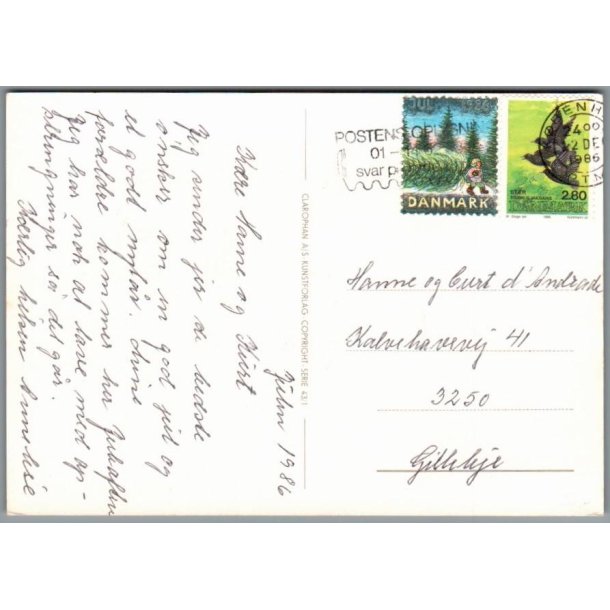 Julen 1986
Kære Hanne og Kurt
Jeg sender jer de bedste
ønsker om en god jul og
et godt nytår. Mine
forældre kommer her Juleaften
Jeg har nok at lave med op-
ringninger så det går.
Kærlig hilsen Annelise
CLAROPHAN A/S KUNSTFORLAG COPYRIGHT SERIE 43/1
POSTENS OPLYSN
01 -
svar p
JUL 1986
DANMARK
STÆR
2.80
DANMARK
ENH
24 00
2 DE
986
Hanne og Curt d'Andrade
Kalvehavevej 41
3250
Gilleleje